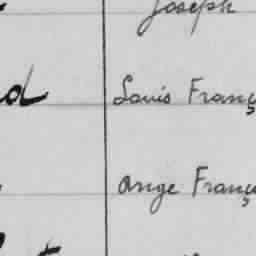 Joseph
Louis Franç
Ange Franç